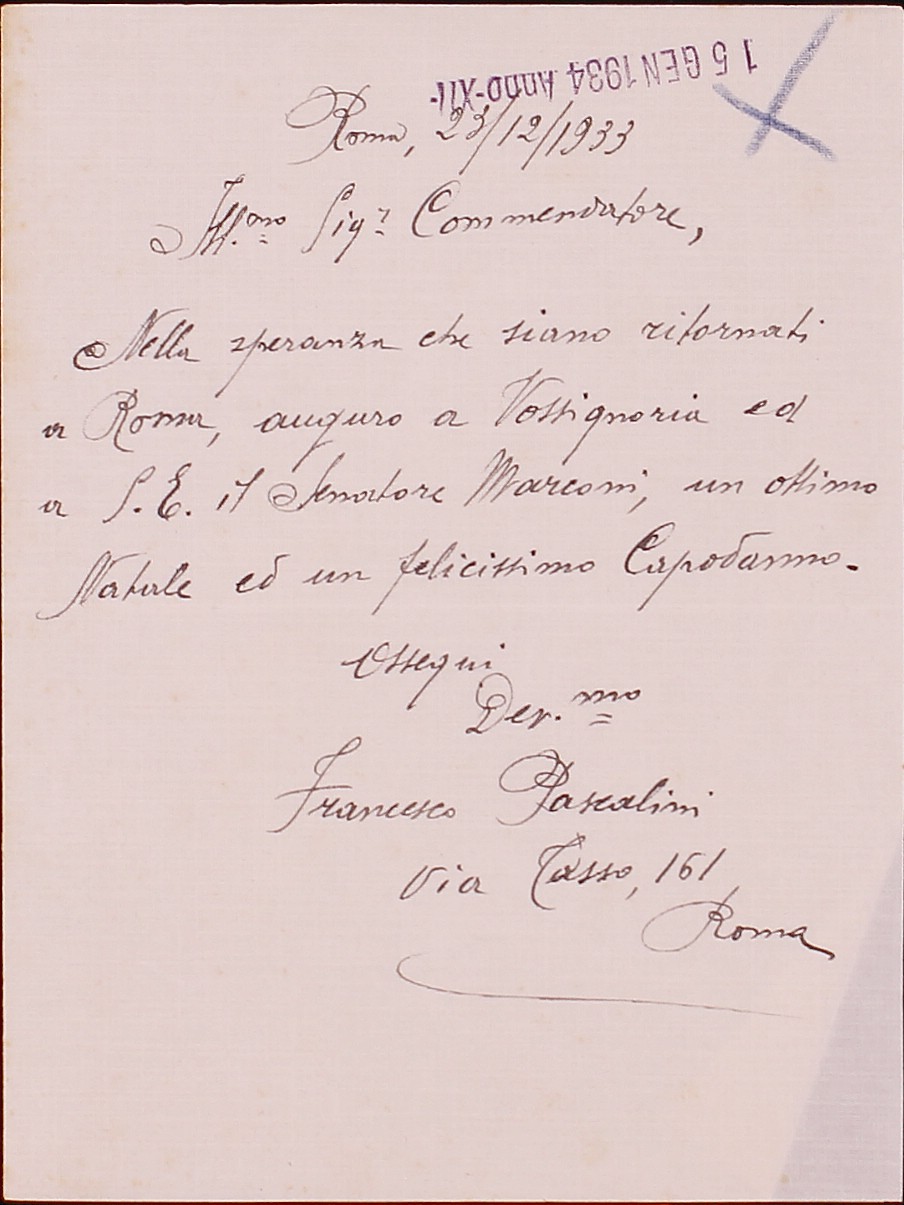 15 GEN 1934 Anno-XII-
Roma, 23/12/1933
Ill.mo Sigr Commendatore,
Nella speranza che siano ritornati
a Roma, auguro a Vossignoria ed
a S.E. il Senatore Marconi, un ottimo
Natale ed un felicissimo Capodanno.
Ossequi
Dev.mo
Francesco Pascalini
Via Tasso, 161
Roma